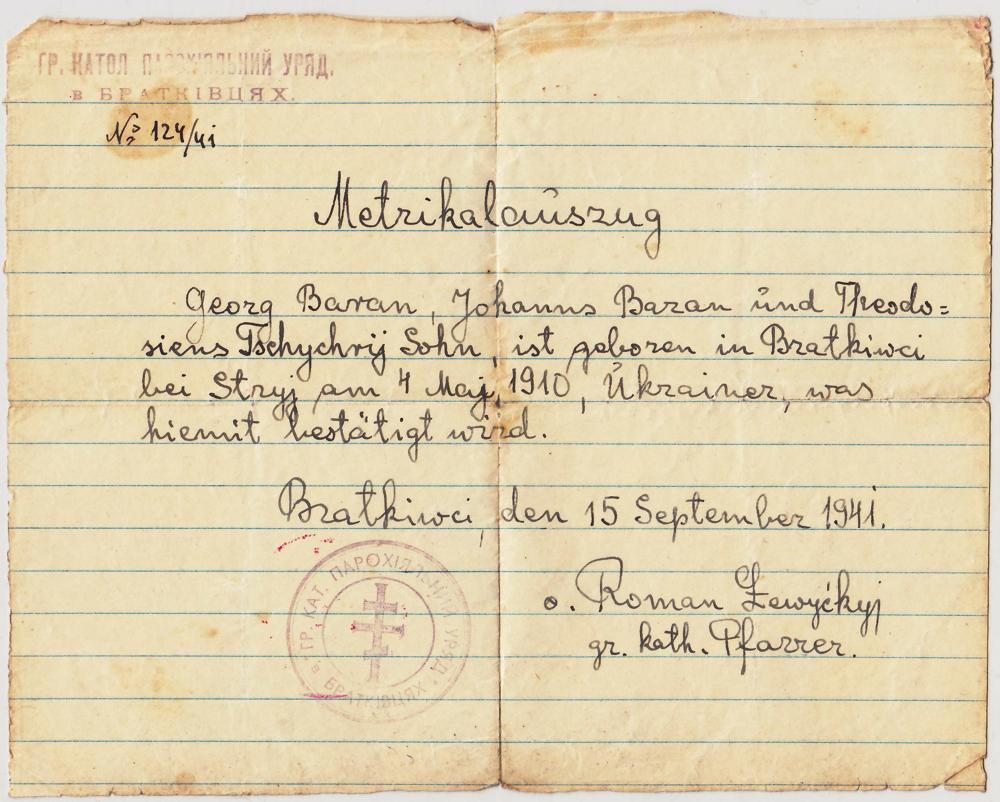 ГР. КАТОЛ ПАРОХІЯЛЬНИЙ УРЯД.
в БРАТКІВЦЯХ.
№ 124/41
Metrikalauszug
Georg Baran, Johanns Baran und Theodo=
siens Tschychrij Sohn, ist geboren in Bratkiwci
bei Stryj am 4 Maj, 1910, Ukrainer, was
hiemit bestätigt wird.
Bratkiwci, den 15 September 1941.
ГР. КАТ. ПАРОХІЯЛЬНИЙ УРЯД
в БРАТКІВЦЯХ
o. Roman
gr. kath. Pfarrer.